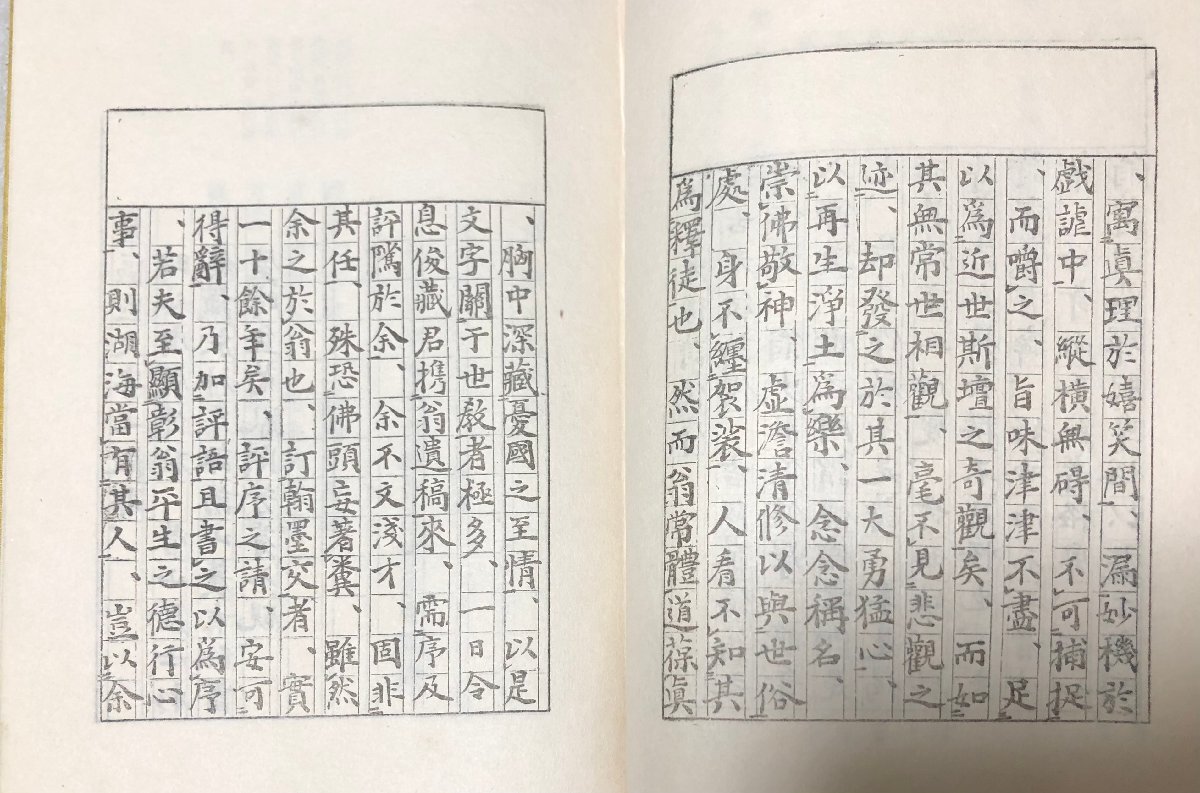 、寓眞理於嬉笑間、漏妙機於
戯謔中、縱横無碍、不可捕捉
、而嚼之、旨味津津不盡、足
以爲近世斯壇之奇觀矣、而如
其無常世相觀、毫不見悲觀之
迹、却發之於其一大勇猛心、
以再生淨土爲樂、念念稱名、
崇佛敬神、虚澹清修以與世俗
處、身不纏袈裟、人看不知其
爲釋徒也、然而翁常體道葆眞
、胸中深藏憂國之至情、以是
文字關于世敎者極多、一日令
息俊藏君携翁遺稿來、需序及
評隲於余、余不文淺才、固非
其任、殊恐佛頭妄著糞、雖然
余之於翁也、訂翰墨交者、實
一十餘年矣、評序之請、安可
得辭、乃加評語且書之以爲序
、若夫至顯彰翁平生之德行心
事、則湖海當有其人、豈以余